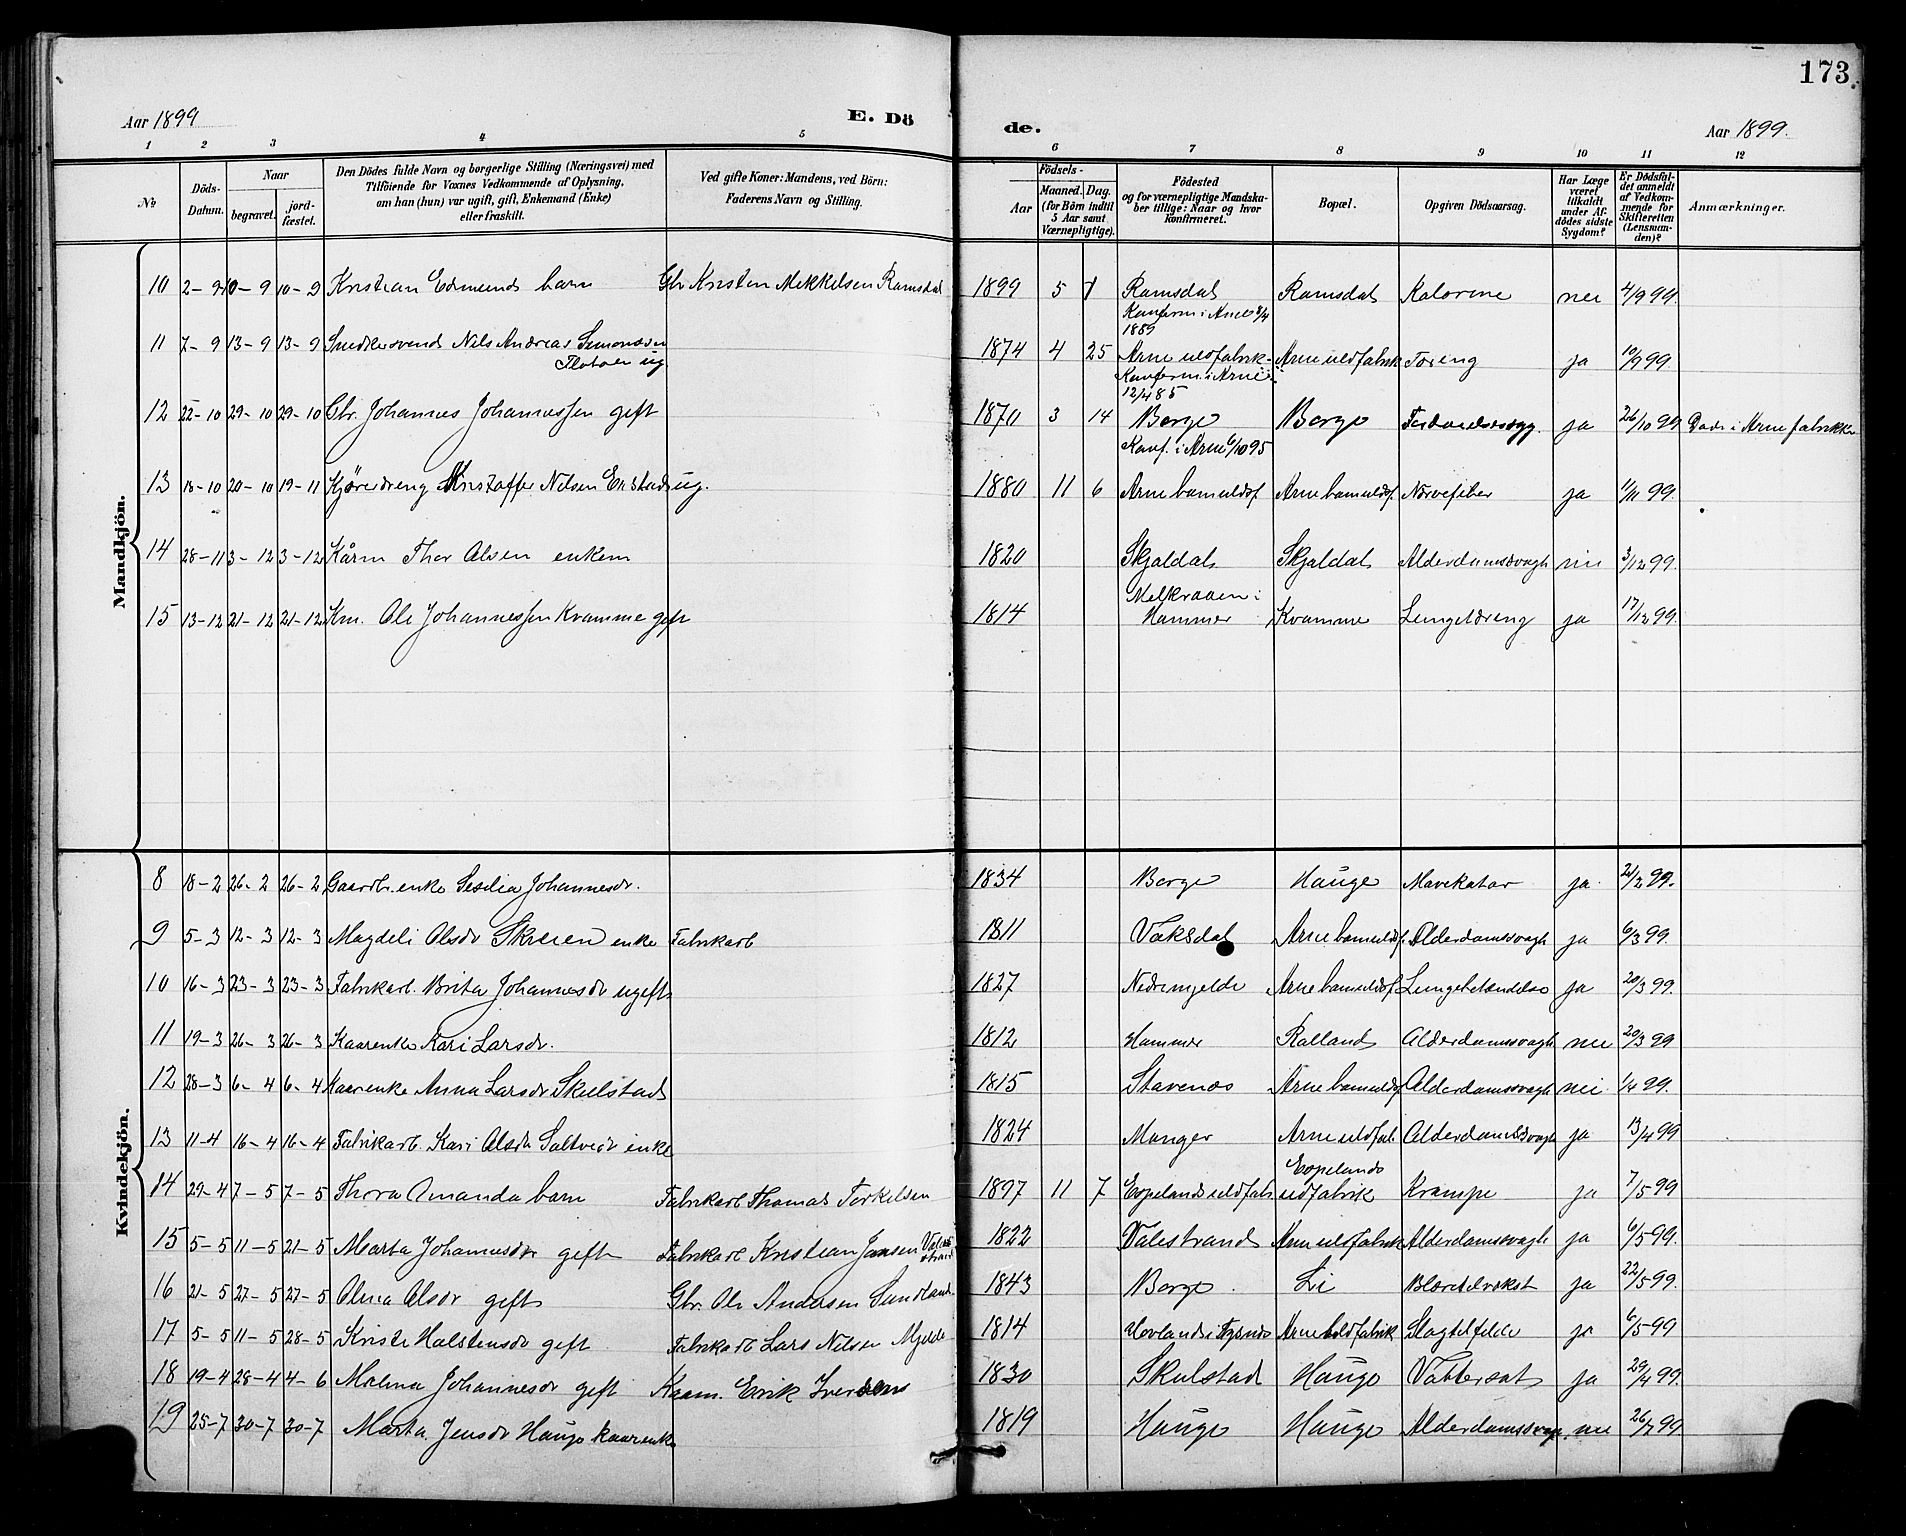 173.
Aar 1899 E. Dö de. Aar 1899.
1 2 3 4 5 6 7 8 9 10 11 12
№
Döds-Datum.
Naar
begravet.
jord-fæstet.
Den Dödes fulde Navn og borgerlige Stilling (Næringsvei) med
Tilföiende for Voxnes Vedkommende af Oplysning,
om han (hun) var ugift, gift, Enkemand (Enke)
eller fraskilt.
Ved gifte Koner: Mandens, ved Börn:
Faderens Navn og Stilling.
Födsels-
Aar
Maaned. Dag.
(for Börn indtil
5 Aar samt
Værnepligtige).
Födested
og for værnepligtige Mandska-
ber tillige: Naar og hvor
konfirmeret.
Bopæl.
Opgiven Dödsaarsag.
Har Læge
været
tilkaldt
under Af-
dødes sidste
Sygdom?
Er Dödsfal-
det anmeldt
af Vedkom-
mende for
Skifteretten
(Lensman-
den)?
Anmærkninger.
Mandkjön.
10 2-9 10-9 10-9 Kristian Edmund barn Gbr Kristen Mikkelsen Ramsdal 1899 5 Ramsdal Ramsdal Kolerine nei 4/9 99.
Konferm i Arne 8/4
1889
11 7-9 13-9 13-9 Snedkersvend Nils Andreas Simonsen
ug. 1874 4 25 Arne uldfabrik Arne uldfabrik Tæring ja 10/9 99.
Konferm. i Arne
12/4 85
12 22-10 29-10 29-10 Gbr. Johannes Johannessen gift 1870 3 14 Borge Borge ja 26/10 99 Døde i Arne fabrikke
Konf. i Arne 6/10 95
13 15-10 20-10 19-11 Kjøredreng Kristoffer Nilsen ug. 1880 11 6 Arne bomuldsf. Arne bomuldsf. Nervefeber ja 11/11 99.
14 28-11 3-12 3-12 Kårm Thor Olsen enkem 1820 Skjoldal Skjoldal Alderdomssvagh nei 3/12 99.
Melkraaen i
15 13-12 21-12 21-12 Km. Ole Johannessen Kvamme gift 1814 Hammer Kvamme Lungetæring ja 17/12 99.
Kvindekjön.
8 18-2 26-2 26-2 Gaardb. enke Sesilia Johannesdr. 1834 Borge Hauge Mavekatar ja 21/2 99.
9 5-3 12-3 12-3 Magdeli Olsdr Skreien enke Fabrikarb 1811 Vaksdal Arne bomuldsf. Alderdomssvagh ja 6/3 99.
10 16-3 23-3 23-3 Fabrikarb. Brita Johannesdr ugift 1827 Nedremjelde Arne bomuldsf. Lungebetændelse ja 20/3 99.
11 19-3 26-3 26-3 Kaarenke Kari Larsdr. 1812 Hammer Rolland Alderdomssvagh nei 20/3 99
12 28-3 6-4 6-4 Kaarenke Anna Larsdr Skulstad 1815 Stavenes Arne bomuldsf Alderdomssvagh nei 1/4 99.
13 11-4 16-4 16-4 Fabrikarb. Kari Olsdr Saltveidt enke 1824 Manger Arne uldfab. Alderdomssvagh ja 13/4 99
14 29-4 7-5 7-5 Thora Amanda barn Fabrikarb Thomas Torkelsen 1897 11 7 Espelands uldfab Espelands uldfabrik Krampe ja 7/5 99
15 5-5 11-5 21-5 Marta Johannesdr gift Fabrikarb Kristian Jansen Valestrand 1822 Valestrand Arne uldfabrik Alderdomssvagh ja 6/5 99.
16 21-5 27-5 27-5 Olina Olsdr gift Gbr. Ole Andersen Sundland 1843 Borge Li ja 22/5 99.
17 5-5 11-5 28-5 Kristi Halstensdr gift Fabrikarb Lars Nilsen Mjelde 1814 Hovland i Tysnes Arne uldfabrik Slagtilfelde ja 6/5 99
18 19-4 28-4 4-6 Malena Johannesdr gift Kaarm. Eirik Iversens 1830 Skulstad Hauge Vattersot ja 29/4 99.
19 25-7 30-7 30-7 Marta Jensdr Hauge kaarenke 1819 Hauge Hauge Alderdomssvagh nei 26/7 99